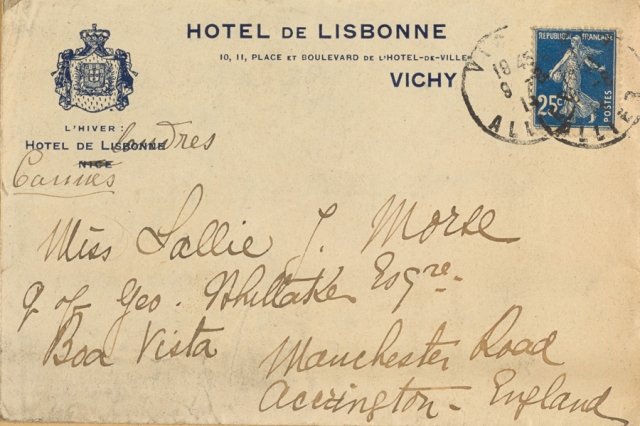 HOTEL DE LISBONNE
10, 11, PLACE ET BOULEVARD DE L'HOTEL-DE-VILLE
VICHY
REPUBLIQUE FRANÇAISE
25c
POSTES
18 45
ALLIER
L'HIVER:
HOTEL DE LISBONNE
Londres
NICE
Cannes
Miss Sallie J. Morse
Geo. Whittaker Esqre.
Boa Vista
Manchester Road
Accrington - England